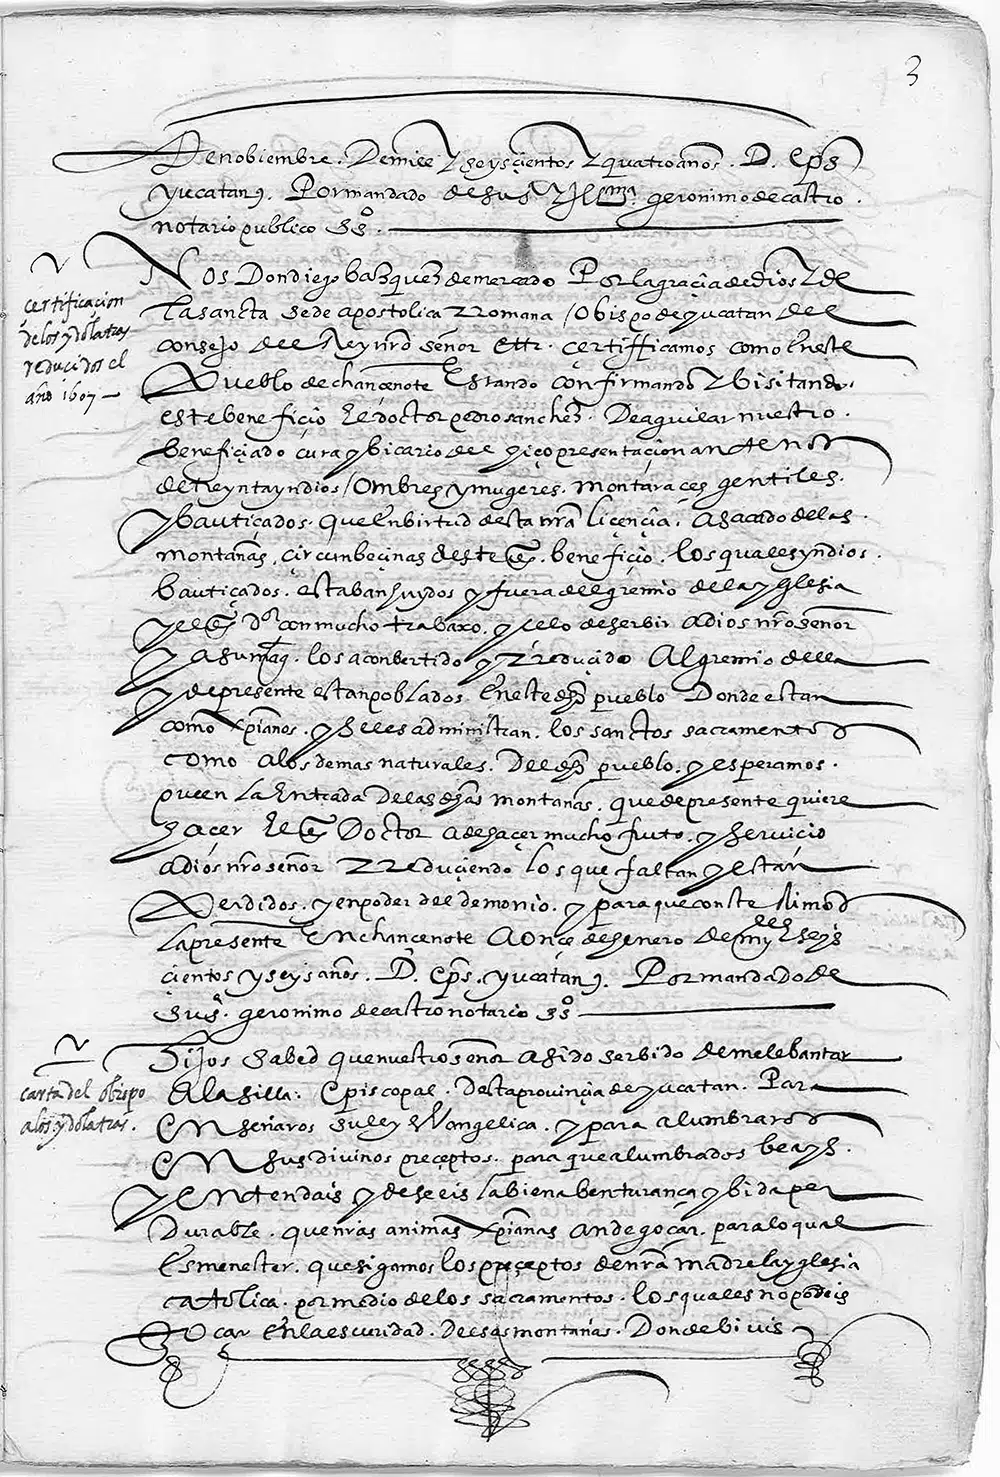 3
De nobiembre. De mill y seyscientos y quatro años. D. Eps
yucatan9. Por mandado de su sª Yllma. geronimo de castro
notario publico ss.
certificacion
de los ydolatras
reducidos el
año 1607
Nos Don diego bazquez de mercado Por la gracia de dios y de
la sancta sede apostolica rromana / Obispo de yucatan del
consejo del Rey nro señor ettz. certifficamos como En este
Pueblo de chancenote Estando confirmando y bisitando.
este beneficio El doctor pedro sanchez. De aguilar nuestro.
beneficiado cura y bicario del hiço presentacion ante nos
de treynta yndios / Ombres y mugeres. montaraces gentiles.
y bautiçados. que En birtud de sta nra licencia. a sacado de las.
montañas, circunbeçinas deste beneficio. los quales yndios.
bautiçados. estaban huydos y fuera del gremio de la yglesia
y el Dor con mucho trabaxo. y celo de serbir a dios nro señor
y a su magd. los a conbertido y rreducido Al gremio della
y de presente estan poblados En este dho pueblo Donde estan
como xpianos. y se les administran. los sanctos sacramentos
como a los demas naturales. Del dho pueblo. y esperamos.
que en la Entrada de las dhas montañas. que de presente quiere
haçer El Doctor a de haçer mucho fruto. y serviçio
a dios nro señor rreduciendo los que faltan y estan
Perdidos. y en poder del demonio. y para que conste dimos
la presente En chancenote A onçe de henero de myll y seys
cientos y seys años. D. Eps. yucatan9. Por mandado de
su sª. geronimo de castro notario ss
carta del obispo
a los ydolatras.
Hijos sabed que nuestro señor a sido serbido de me lebantar
A la silla: Episcopal. desta provinçia de yucatan. Para
Enseñaros su ley Evangelica. y para alumbraros
En sus divinos preçeptos. para que alumbrados beays.
y Entendais y deseeis la bienabenturança y bida per
Durable. que nras animas xpianas an de goçar. para lo qual
Es menester. que sigamos los preçeptos de nra madre la yglesia
catolica. por medio de los sacramentos. los quales no podeis
Goçar En la escuridad. De esas montañas. Donde bivis